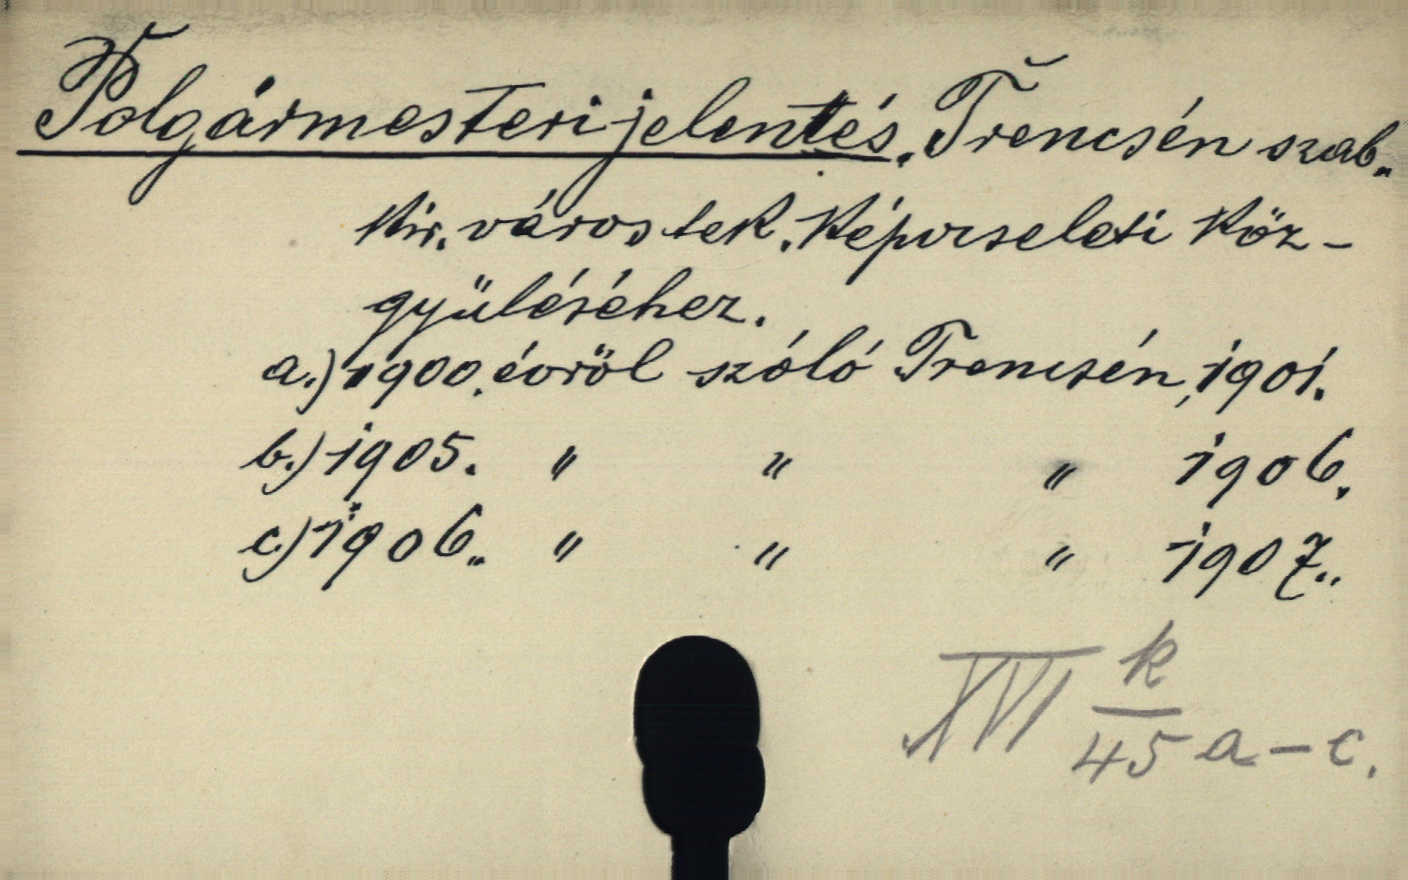 Polgármesteri jelentés. Trencsén szab.
kir. város tek. Képviseleti Köz-
gyüléséhez.
a.) 1900. évröl szóló Trencsén, 1901.
b.) 1905. " " " 1906.
c.) 1906. " " " 1907.
XVI k/45 a-c.